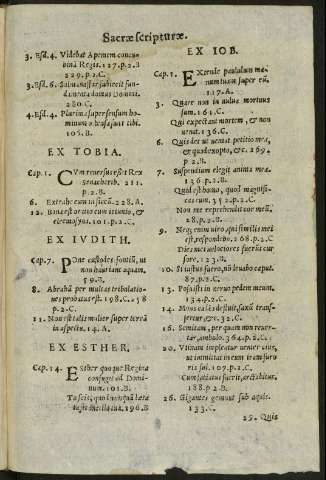 Sacræ scripturæ.
3. Esd. 4. Videbat Apemen concu-
binã Regis. 127. p. 2. B
229. p. 2. C.
3. Esd. 6.
280. C.
4. Esd. 4. Plurima super sensum ho-
minum
105. B.
EX TOBIA.
Cap. 1. CVm reuersus est Rex
Senacherib. 211.
p. 2. B.
6. Extrahe eum in siccũ. 228. A.
12. Bona est oratio cum ieiunio, &
eleemosyna. 101. p. 2. C.
EX IVDITH.
Cap. 7. POne custodes fontiũ, ut
non hauriant aquam.
59. B.
8. Abrahã per multas tribulatio-
nes probatus est. 198. C. 238
p. 2. C.
11. Non est talis mulier super terrã
in aspectu. 14. A.
EX ESTHER.
Cap. 14. ESther quoque Regina
confugit ad Domi-
num. 101. B.
Tu scis, quod nunquã læta
ta sit ancilla tua. 196. B
EX IOB.
Cap. 1. EXtende paululum ma-
num tuam super eũ.
117. A.
3. Quare non in uulua mortuus
sum. 161. C.
Qui expectant mortem, & non
uenit. 136. C.
6. Quis det ut ueniat petitio mea,
& quod expecto, &c. 269.
p. 2. B.
7. Suspendium elegit anima mea
136. p. 2. B.
Quid est homo, quod magnifi-
cas eum. 352. p. 2. C.
Non me reprehendit cor meũ.
p. 2. B.
9. Neq; enim uiro, qui similis mei
est, respondebo. 268. p. 2. C
Dies mei uelociores fuerũt cur
sore. 123. B.
10. Si iustus fuero, nõ leuabo caput.
87. p. 2. C.
13. Posuisti in neruo pedem meum.
134. p. 2. C.
14. Mons cadẽs defluit, saxũ trans-
fertur, &c. 32. C.
16. Semitam, per quam non reuer-
tar, ambulo. 364. p. 2. C.
20. Vtinam impleatur uenter eius,
ut immittat in eum iram furo
ris sui. 107. p. 2. C.
Cum satiatus fuerit, arctabitur.
188. p. 2. B.
26. Gigantes gemunt sub aquis.
133. C.
29. Quis